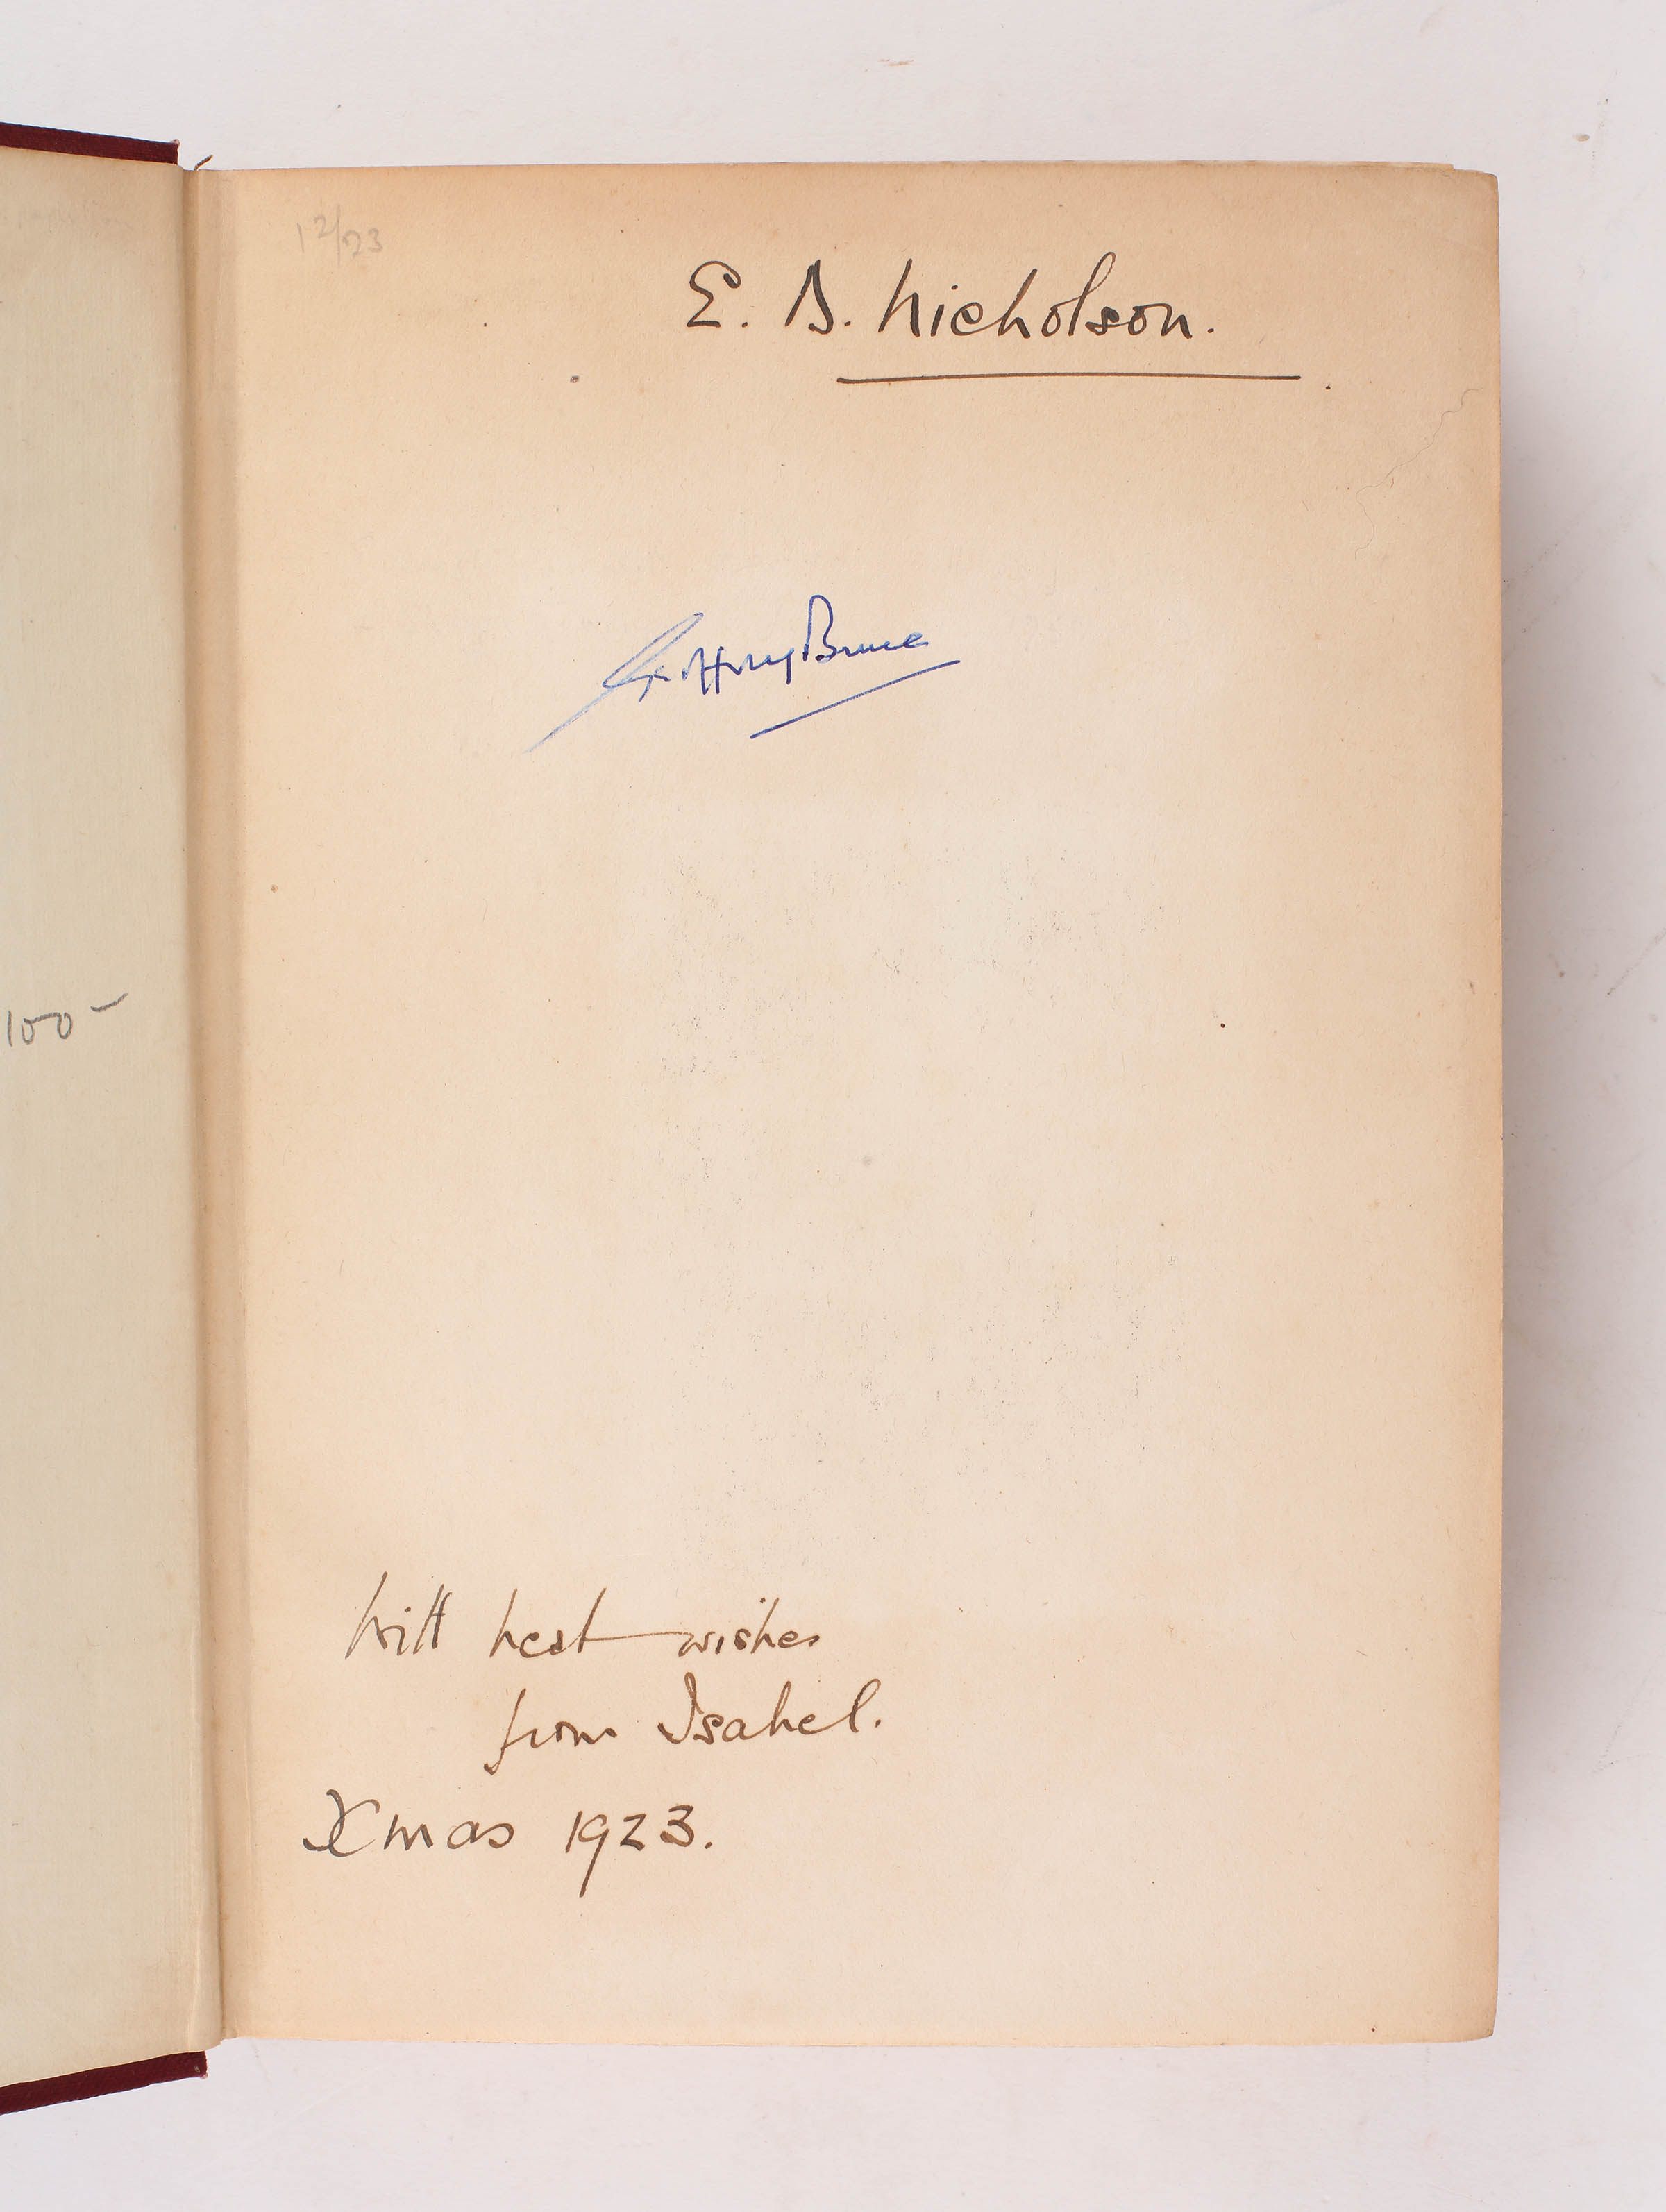 12/23
E. B. Nicholson.
Geoffrey Bruce
100-
With best wishes
from Isabel.
Xmas 1923.